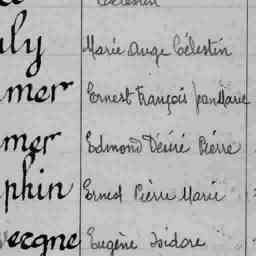 Célestin
uly Marie Ange Célestin
mer Ernest François Jean Marie
mer Edmond Désiré Pierre
phin Ernest Pierre Marie
vergne Eugène Isidore